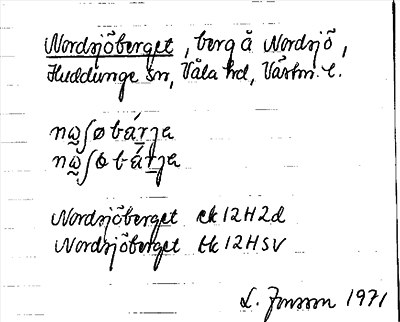 Nordsjöberget, berg å Nordsjö,
Huddunge sn, Våla hd, Västm. l.
nω̰ʃøbárja
nω̰ʃøbárja
Nordsjöberget ek 12H2d
Nordsjöberget tk 12HSV
L. Jonsson 1971